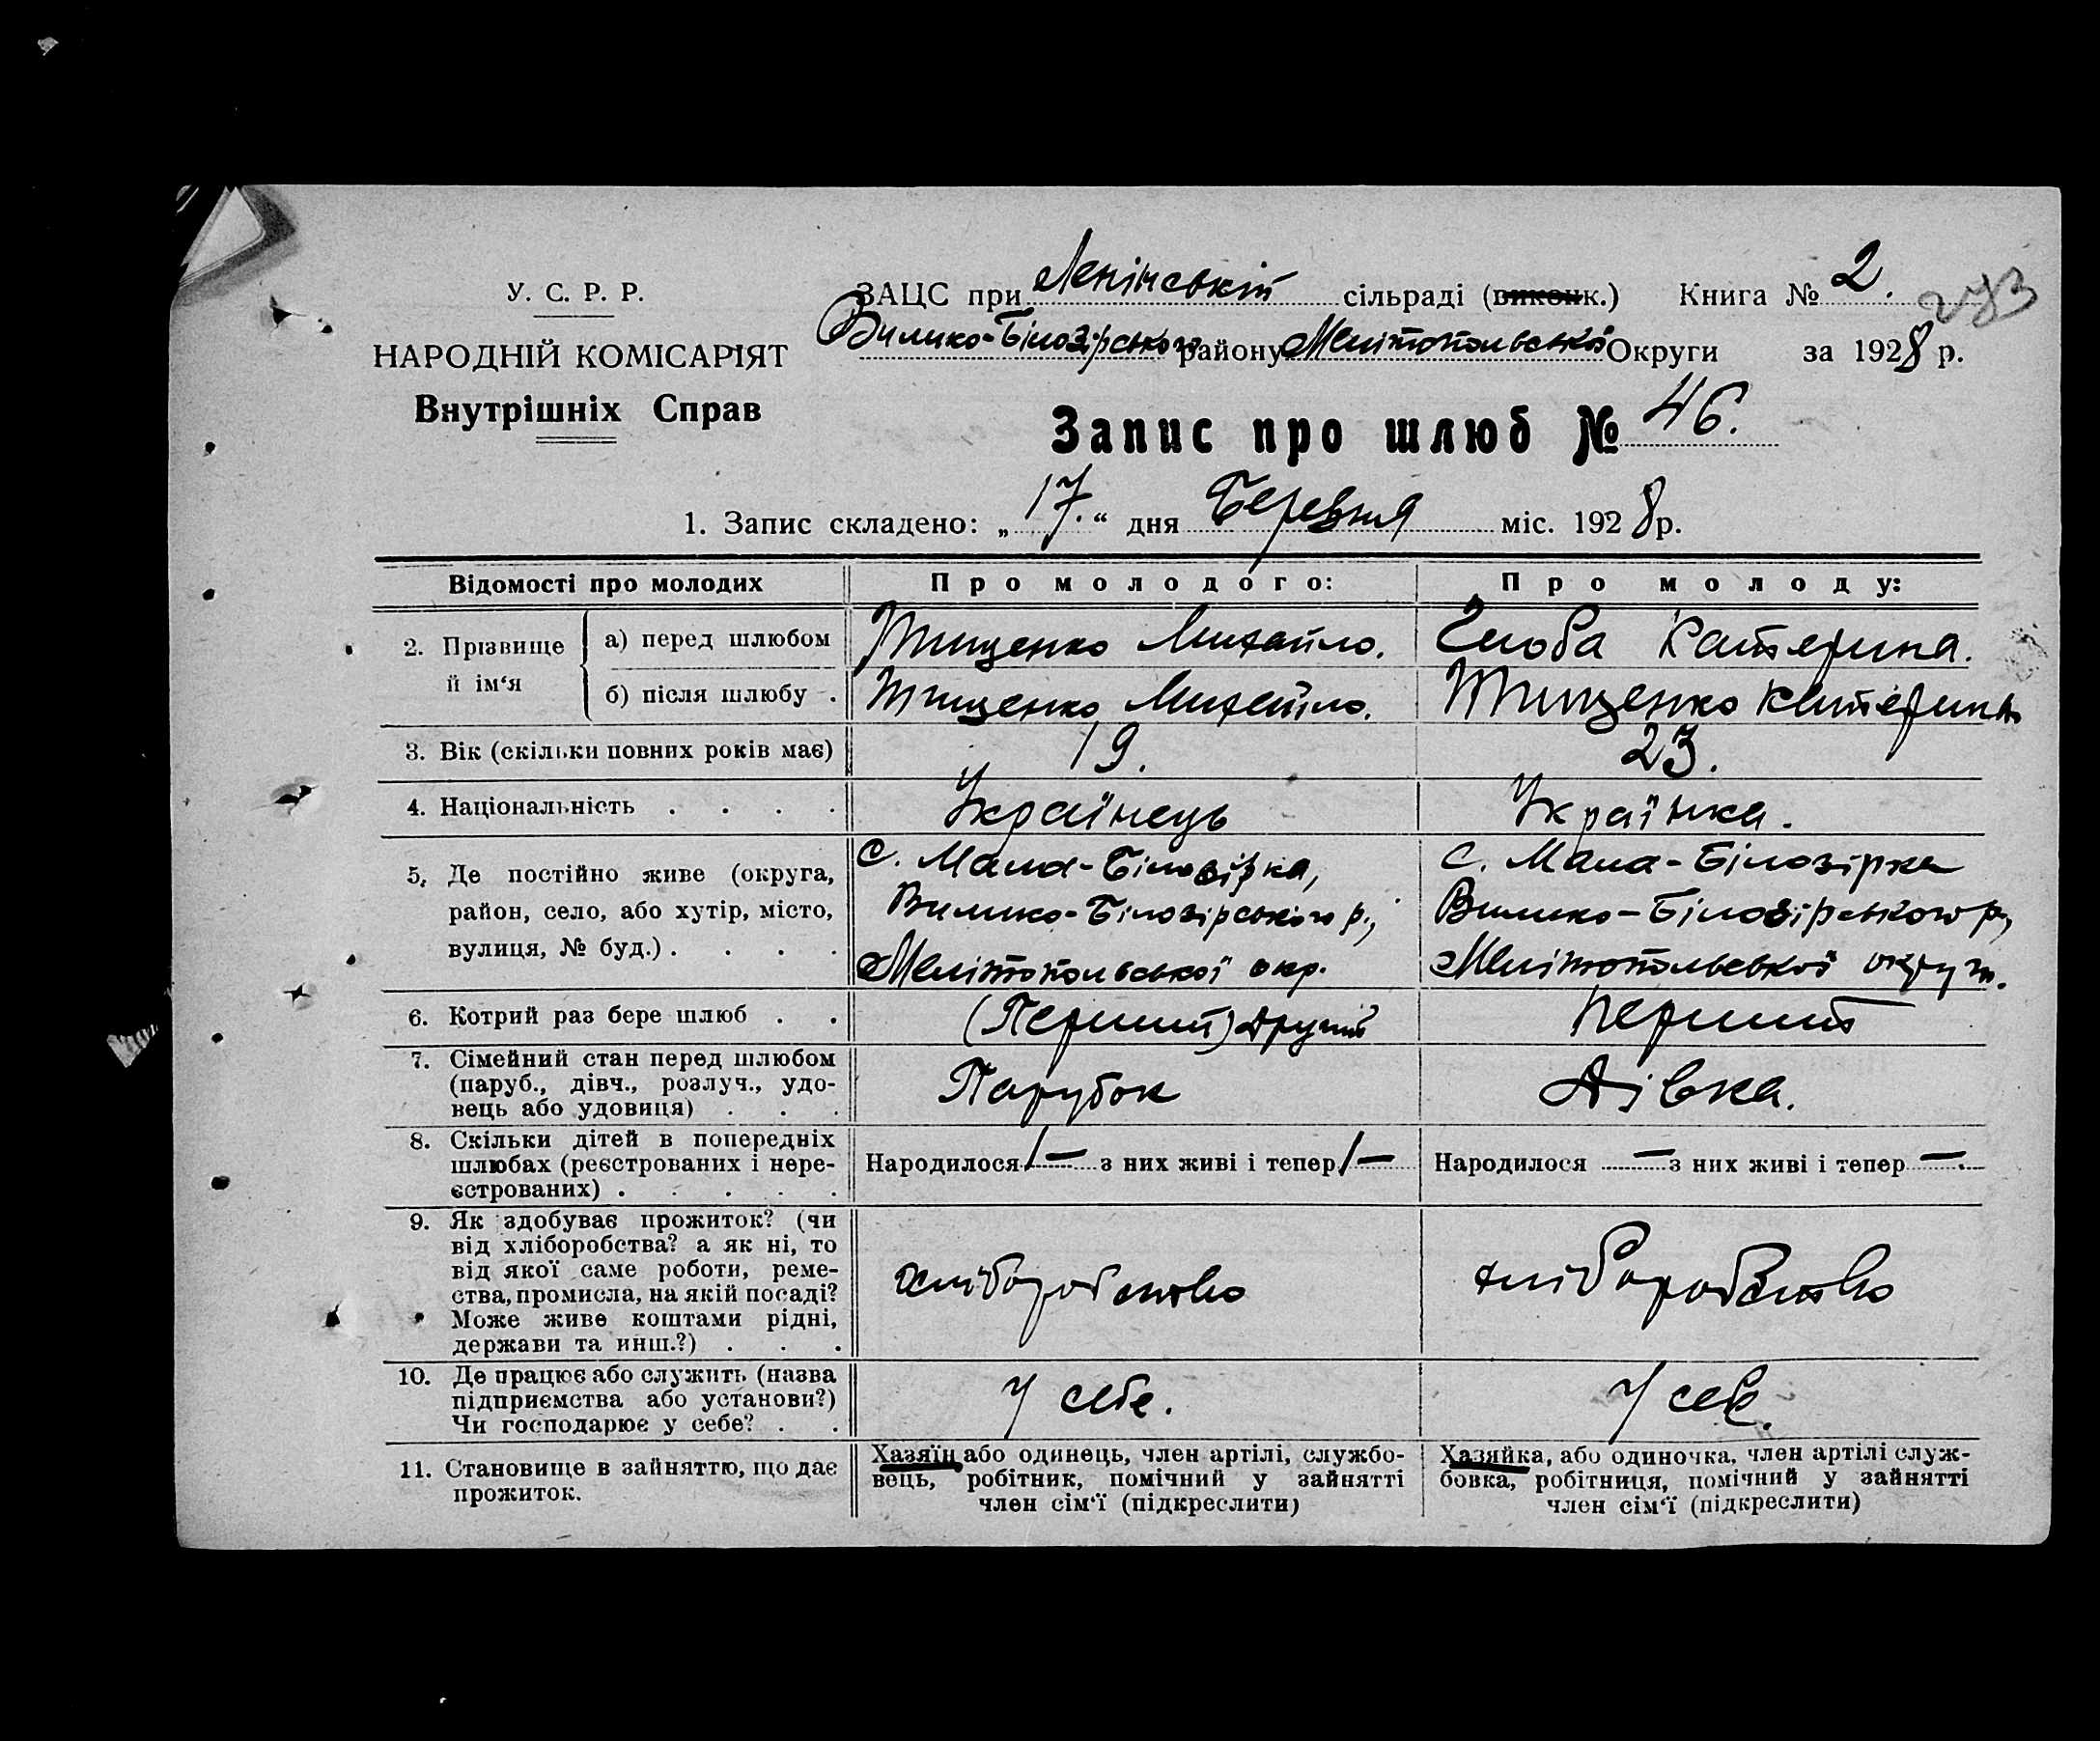 У. С. Р. Р.
НАРОДНІЙ КОМІСАРІЯТ
Внутрішніх Справ
ЗАЦС при Ленінській сільраді (виконк.) Книга № 2. 273
Вилико-Білозірського району Мелітопольської Округи за 1928 р.
Запис про шлюб № 46.
1. Запис складено: „17.“ дня Березня міс. 1928 р.
Відомості про молодих Про молодого: Про молоду:
2. Прізвище й ім‘я
а) перед шлюбом Тищенко Михайло. Катерина.
б) після шлюбу . Тищенко Михайло. Тищенко Катерина
3. Вік (скільки повних років має) 19. 23.
4. Національність . . . . Українець Українка.
5. Де постійно живе (округа, с. Мала-Білозірка, с. Мала-Білозірка
район, село, або хутір, місто, Вилико-Білозірського р., Вилико-Білозірського р,
вулиця, № буд.) . . . . Мелітопольської окр. Мелітопольської округи.
6. Котрий раз бере шлюб . . (Перший) другий перший
7. Сімейний стан перед шлюбом
(паруб., дівч., розлуч., удо- Парубок Дівка.
вець або удовиця) . . .
8. Скільки дітей в попередніх
шлюбах (реєстрованих і нере- Народилося /— з них живі і тепер /— Народилося — з них живі і тепер —.
єстрованих) . . . . .
9. Як здобуває прожиток? (чи
від хліборобства? а як ні, то
від якої саме роботи, реме- хліборобство хліборобство
ства, промисла, на якій посаді?
Може живе коштами рідні,
держави та инш.?) . . .
10. Де працює або служить (назва
підприємства або установи?) У себе. У себе.
Чи господарює у себе? . .
11. Становище в зайняттю, що дає
прожиток.
Хазяїн або одинець, члeн артілі, службо-
вець, робітник, помічний у зайнятті
член сім‘ї (підкреслити)
Хазяйка, або одиночка, член артілі служ-
бовка, робітниця, помічний у зайнятті
член сім‘ї (підкреслити)